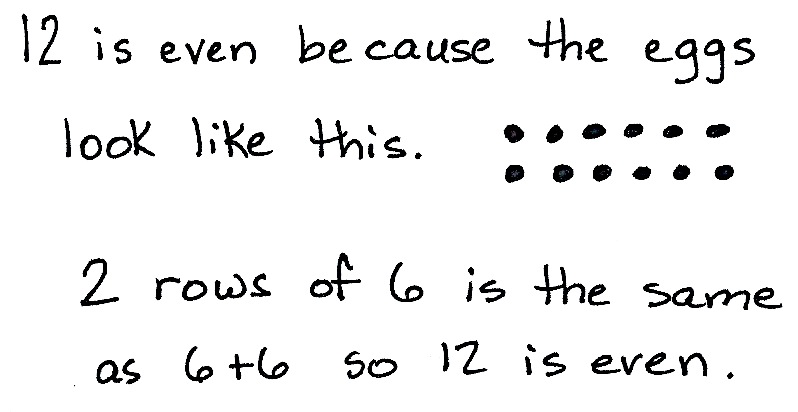 12 is even because the eggs
look like this.
2 rows of 6 is the same
as 6+6 so 12 is even.